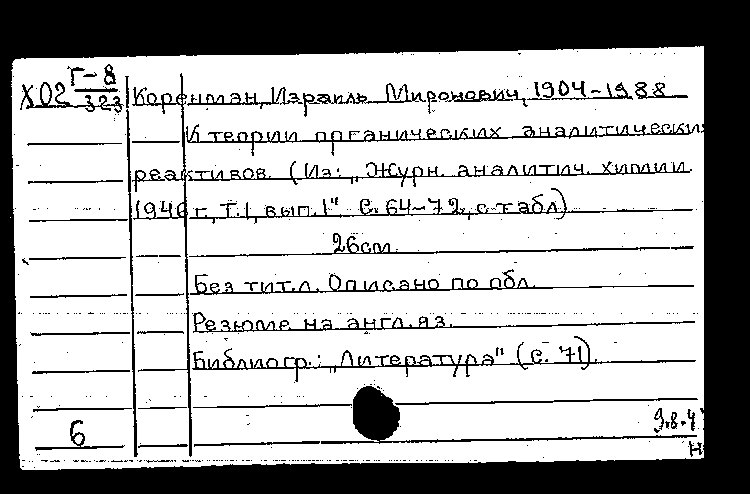 Х02 Г-8/323 Коренман, Израиль Миронович, 1904-1988
К теории органических аналитических
реактивов. (Из: „Журн. аналитич. химии
1946 г, Т.1, вып. 1" С. 64-72, с табл)
26 см.
Без тит. л. Описано по обл.
Резюме на англ. яз.
Библиогр.: „Литература" (с. 71).
6
9.8.4
Н